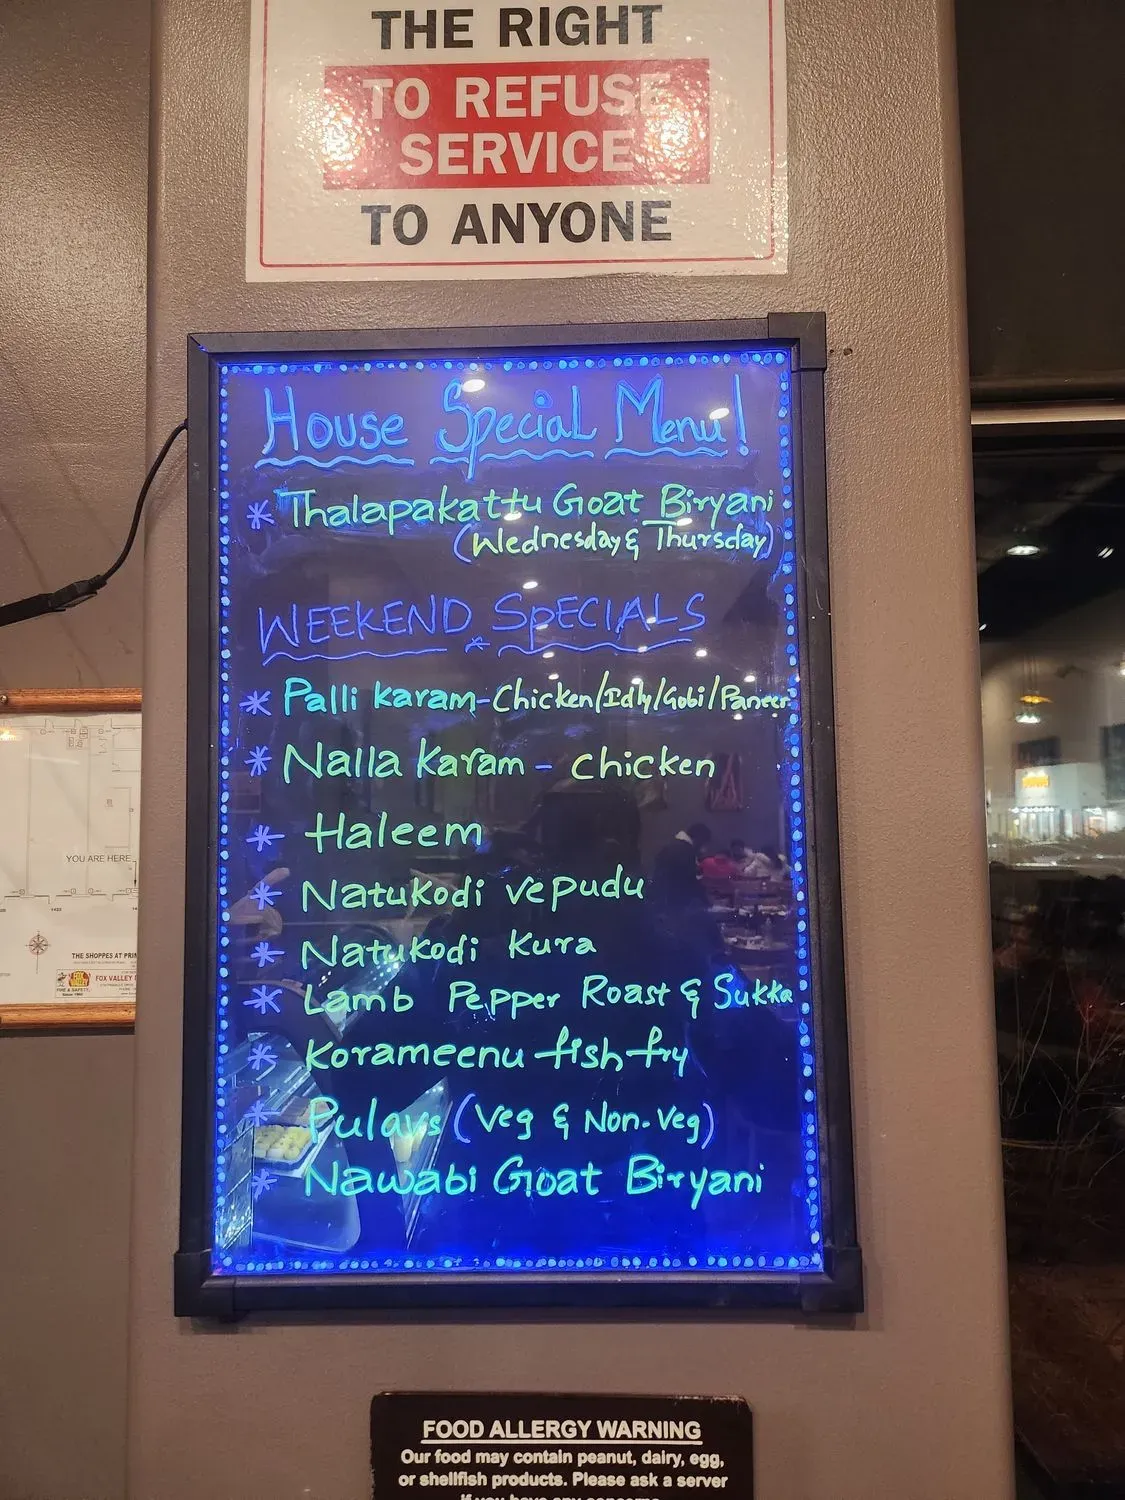 THE RIGHT
TO REFUSE
SERVICE
TO ANYONE
House Special Menu!
* Thalapakattu Goat Biryani
(Wednesday & Thursday)
WEEKEND * SPECIALS
* Palli Karam - Chicken/Idly/Gobi/Paneer
* Nalla Karam - Chicken
* Haleem
* Natukodi vepudu
* Natukodi Kura
* Lamb Pepper Roast & Sukka
* Korameenu fish fry
* Pulavs (Veg & Non-Veg)
* Nawabi Goat Biryani
YOU ARE HERE
THE SHOPPES AT
FOX VALLEY
FOX VALLEY
FIRE & SAFETY
FOOD ALLERGY WARNING
Our food may contain peanut, dairy, egg,
or shellfish products. Please ask a server
if you have any concerns